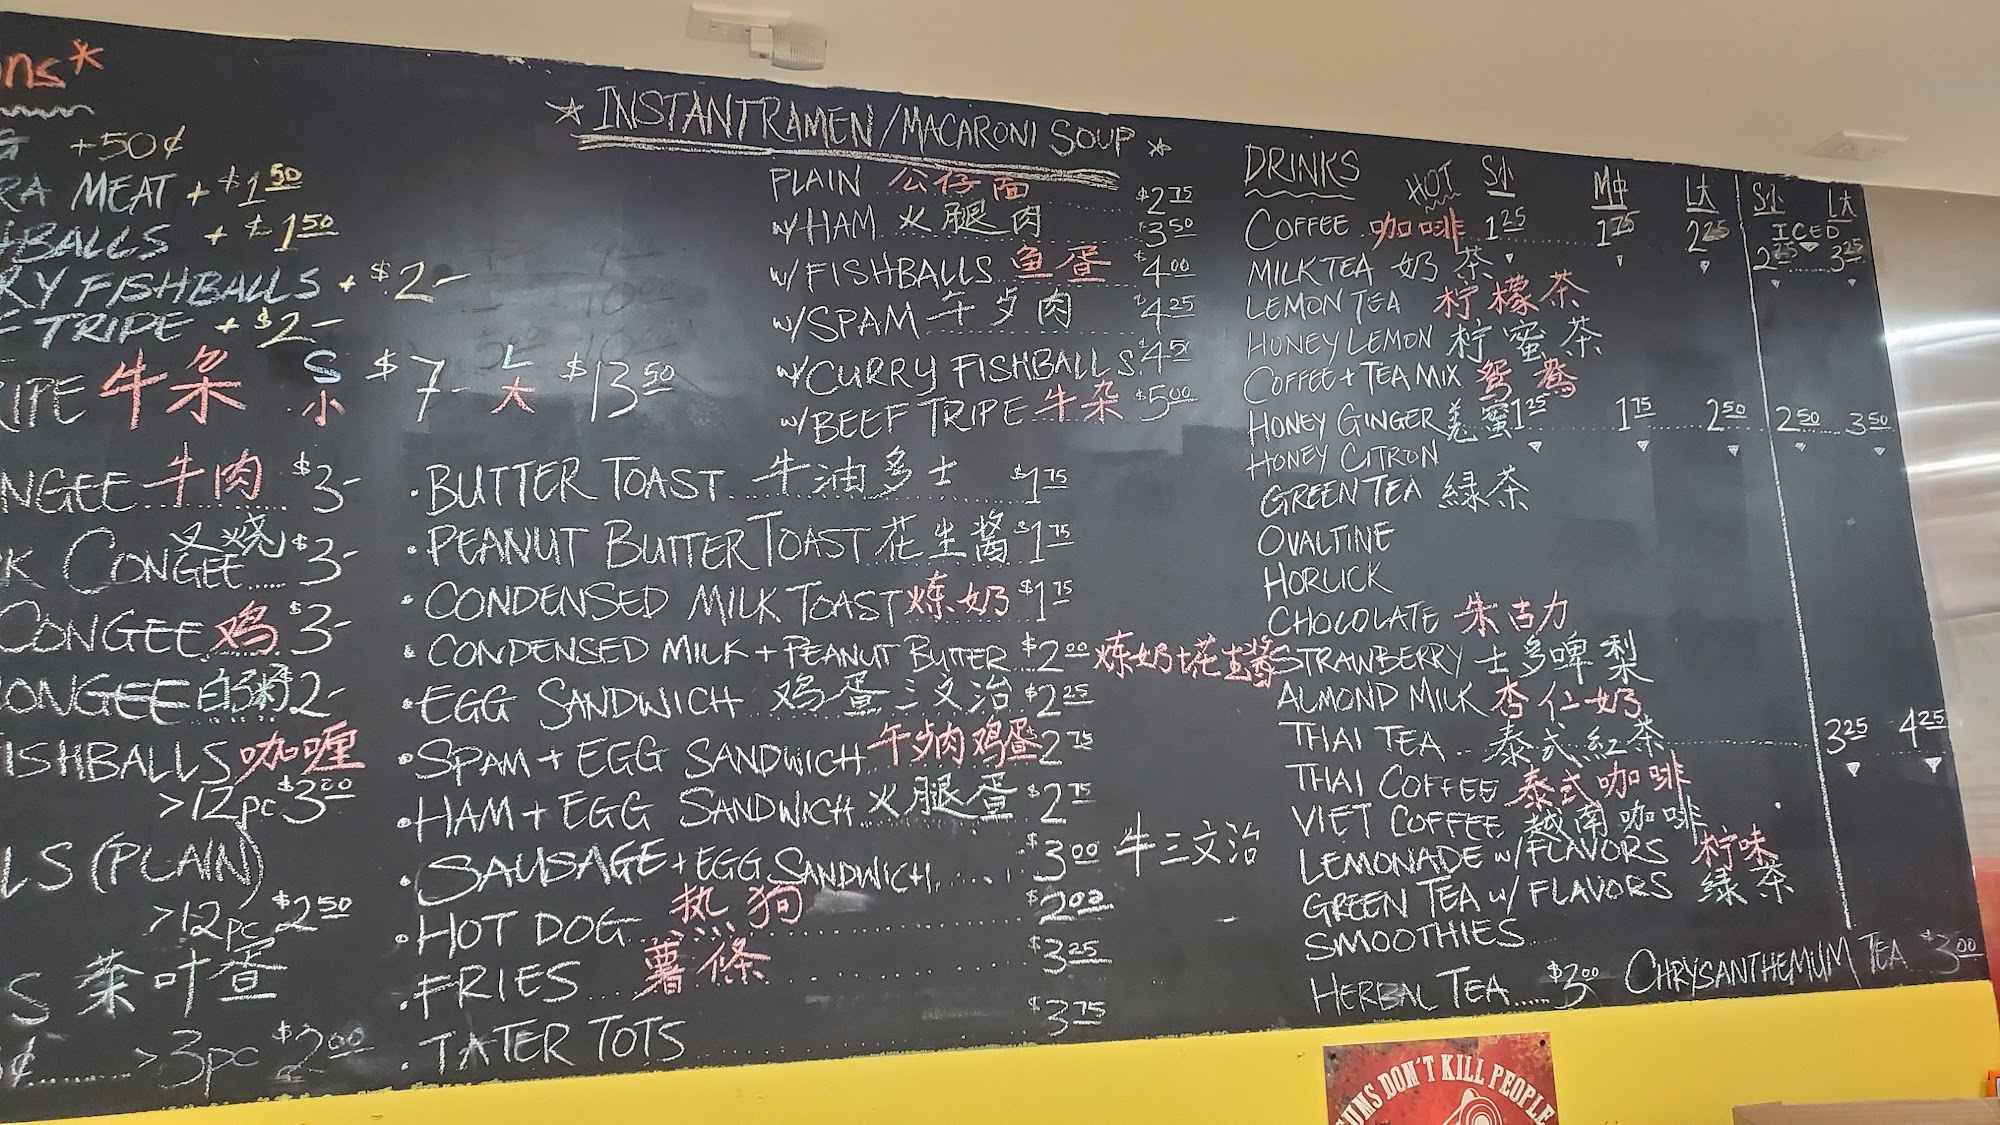 ns*
G +50¢
RA MEAT + $1.50
HBALLS + $1.50
RY FISHBALLS + $2-
E TRIPE + $2-
RIPE 牛杂 S小 $7- L大 $13.50
NGEE 牛肉 $3-
K CONGEE 叉烧 $3-
CONGEE 鸡 $3-
ONGEE 白粥 2-
FISHBALLS 咖喱
>12pc $3.00
LS (PLAIN)
>12pc $2.50
S 茶叶蛋
¢ >3pc $2.00
* INSTANT RAMEN/MACARONI SOUP *
PLAIN 公仔面 $2.75
w/HAM 火腿肉 $3.50
w/FISHBALLS 鱼蛋 $4.00
w/SPAM 午歺肉 $4.25
w/CURRY FISHBALLS $4.50
w/BEEF TRIPE 牛杂 $5.00
·BUTTER TOAST 牛油多士 $1.75
·PEANUT BUTTER TOAST 花生酱 $1.75
·CONDENSED MILK TOAST 炼奶 $1.75
·CONDENSED MILK + PEANUT BUTTER $2.00 炼奶+花生酱
·EGG SANDWICH 鸡蛋三文治 $2.25
·SPAM + EGG SANDWICH 午歺肉鸡蛋 $2.75
·HAM + EGG SANDWICH 火腿蛋 $2.75
·SAUSAGE + EGG SANDWICH $3.00 牛三文治
·HOT DOG 热狗 $2.00
·FRIES 薯條 $3.25
·TATER TOTS $3.75
DRINKS HOT S小 M中 L大 S小 L大
ICED
COFFEE 咖啡 1.25 1.75 2.25 2.25 3.25
MILK TEA 奶茶
LEMON TEA 柠檬茶
HONEY LEMON 柠蜜茶
COFFEE + TEA MIX 鸳鸯
HONEY GINGER 羗蜜 1.25 1.75 2.50 2.50 3.50
HONEY CITRON
GREEN TEA 緑茶
OVALTINE
HORLICK
CHOCOLATE 朱古力
STRAWBERRY 士多啤梨
ALMOND MILK 杏仁奶
THAI TEA 泰式紅茶 3.25 4.25
THAI COFFEE 泰式咖啡
VIET COFFEE 越南咖啡
LEMONADE w/FLAVORS 柠味
GREEN TEA w/FLAVORS 緑茶
SMOOTHIES
HERBAL TEA $3.00 CHRYSANTHEMUM TEA $3.00
GUNS DON'T KILL PEOPLE